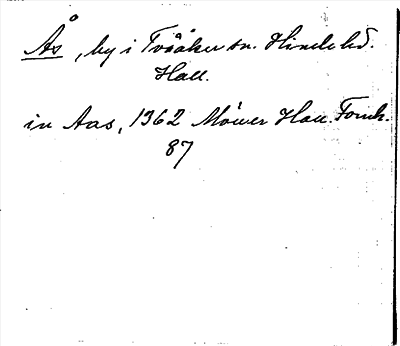 Ås, by i Tvååker sn. Himle hd.
Hall.
in Aas, 1362 Möller Hall. Fornh.
87